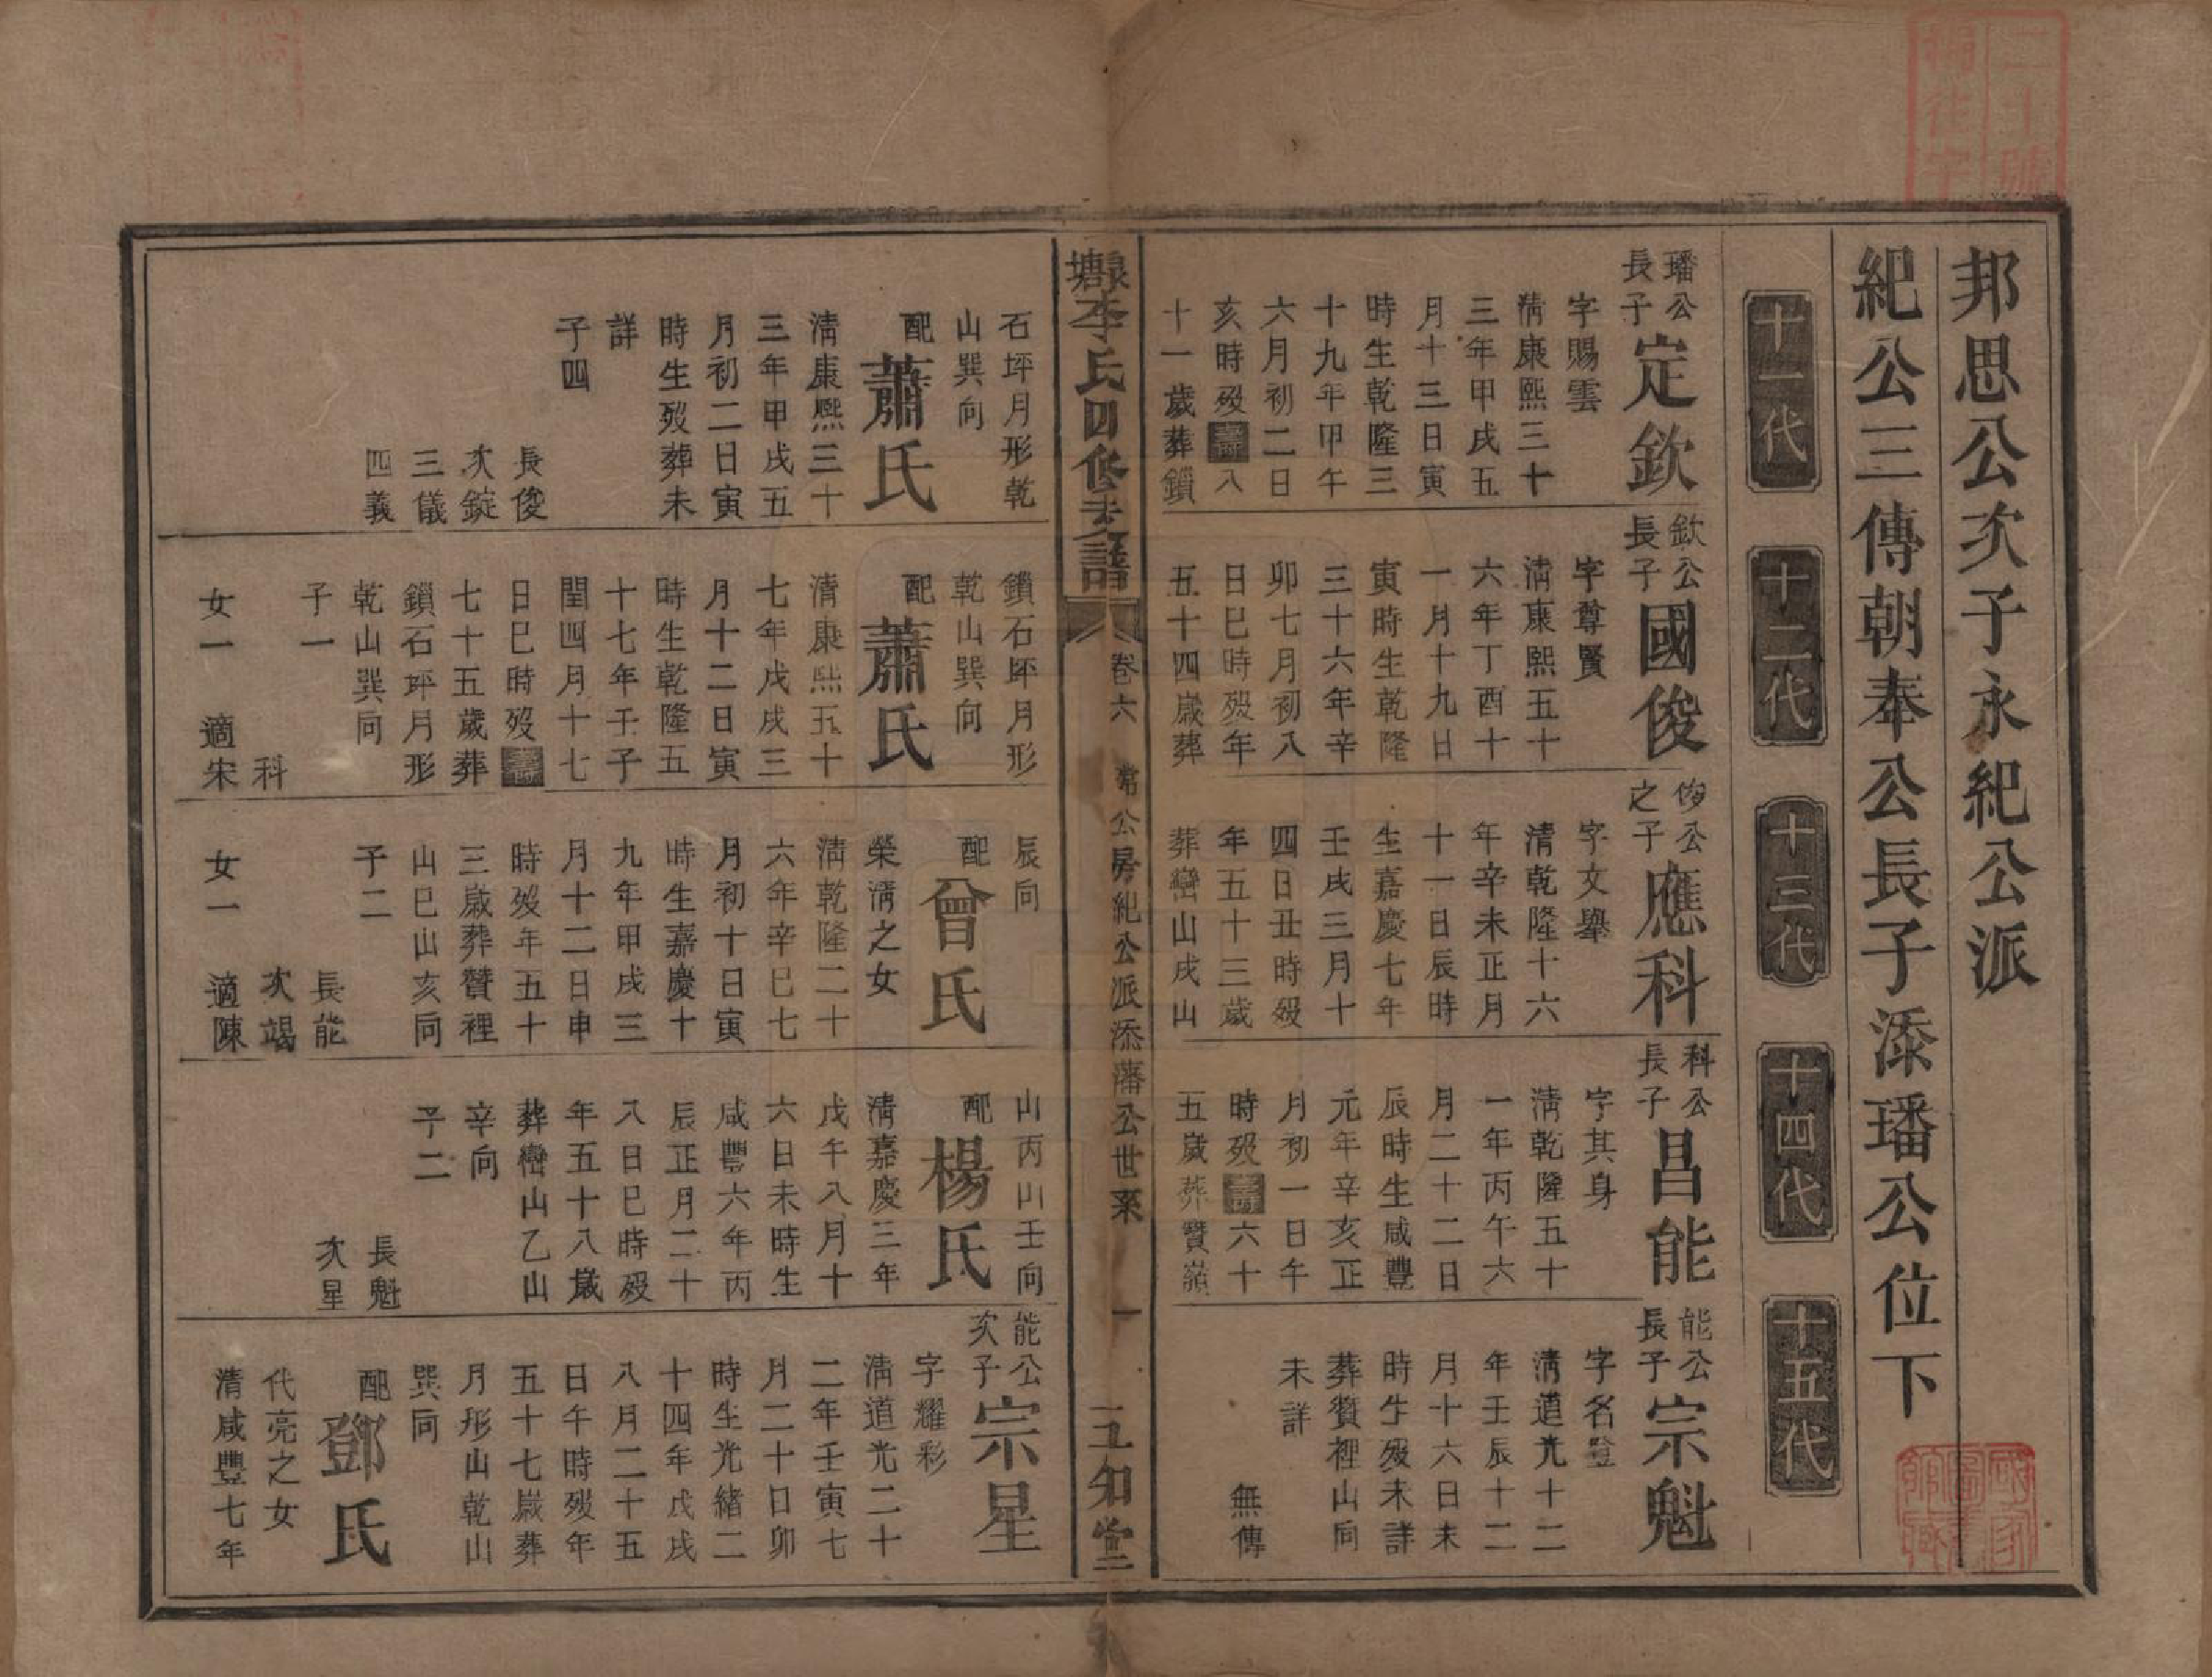 邦思公次子永紀公派
紀公三傳朝奉公長子添璠公位下
十一代
十二代
十三代
十四代
十五代
璠公
長子
定欽
字賜雲
清康熙三十
三年甲戌五
月十三日寅
時生乾隆三
十九年甲午
六月初二日
亥時歿壽八
十一歲葬鎖
石坪月形乾
山巽向
配
蕭氏
清康熙三十
三年甲戌五
月初二日寅
時生歿葬未
詳
子四
長俊
次錠
三儀
四義
欽公
長子
國俊
字尊賢
清康熙五十
六年丁酉十
一月十九日
寅時生乾隆
三十六年辛
卯七月初八
日巳時歿年
五十四歲葬
鎖石坪月形
乾山巽向
配
蕭氏
清康熙五十
七年戊戌三
月十二日寅
時生乾隆五
十七年壬子
閏四月十七
日巳時歿壽
七十五歲葬
鎖石坪月形
乾山巽向
子一
科
女一
適宋
俊公
之子
應科
字文舉
清乾隆十六
年辛未正月
十一日辰時
生嘉慶七年
壬戌三月十
四日丑時歿
年五十三歲
葬巒山戌山
辰向
配
曾氏
榮清之女
清乾隆二十
六年辛巳七
月初十日寅
時生嘉慶十
九年甲戌三
月十二日申
時歿年五十
三歲葬贊裡
山巳山亥向
子二
長能
次竭
女一
適陳
科公
長子
昌能
字其身
清乾隆五十
一年丙午六
月二十二日
辰時生咸豐
元年辛亥正
月初一日午
時歿壽六十
五歲葬贊嶺
山丙山壬向
配
楊氏
清嘉慶三年
戊午八月十
六日未時生
咸豐六年丙
辰正月二十
八日巳時歿
年五十八歲
葬巒山乙山
辛向
子二
長魁
次星
能公
長子
宗魁
字名登
清道光十二
年壬辰十二
月十六日未
時生歿未詳
葬贊裡山向
未詳
無傳
能公
次子
宗星
字耀彩
清道光二十
二年壬寅七
月二十日卯
時生光緒二
十四年戊戌
八月二十五
日午時歿年
五十七歲葬
月形山乾山
巽向
配
鄧氏
代亮之女
清咸豐七年
泉塘李氏四修支譜
卷六
常公房紀公派添藩公世系
一
五知堂